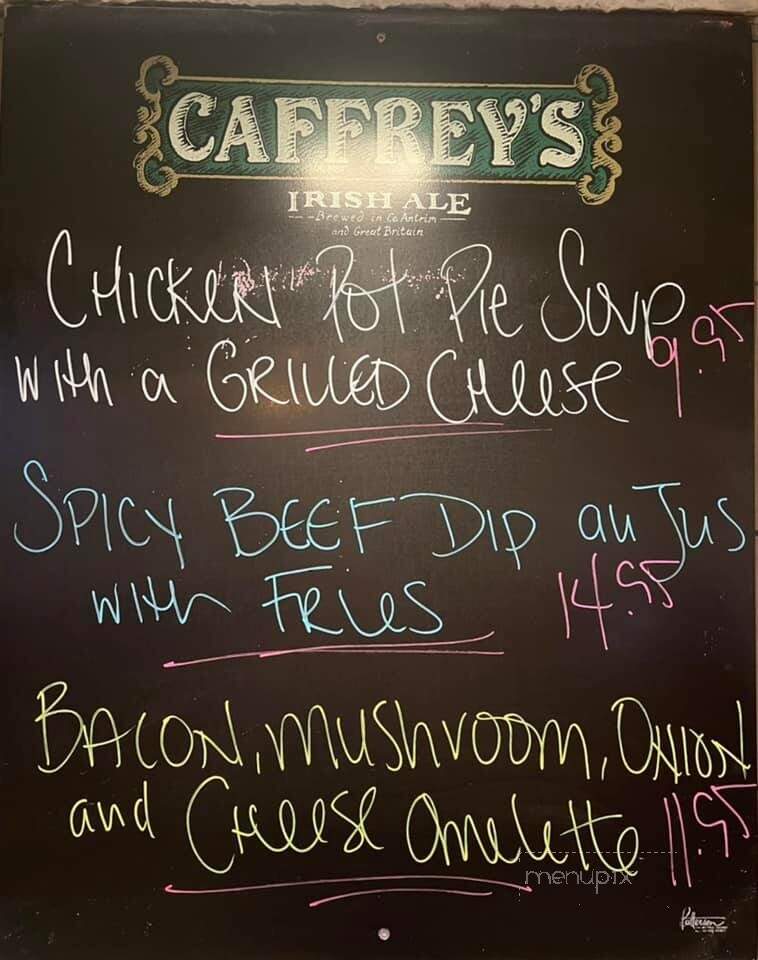 CAFFREY'S
IRISH ALE
Brewed in Co Antrim
and Great Britain
CHICKEN Pot Pie Soup
with a GRILLED CHEESE 9.95
SPICY BEEF DIP au Jus
with FRIES 14.95
BACON, MUSHROOM, ONION
and CHEESE Omelette 11.95
menupix
Patterson